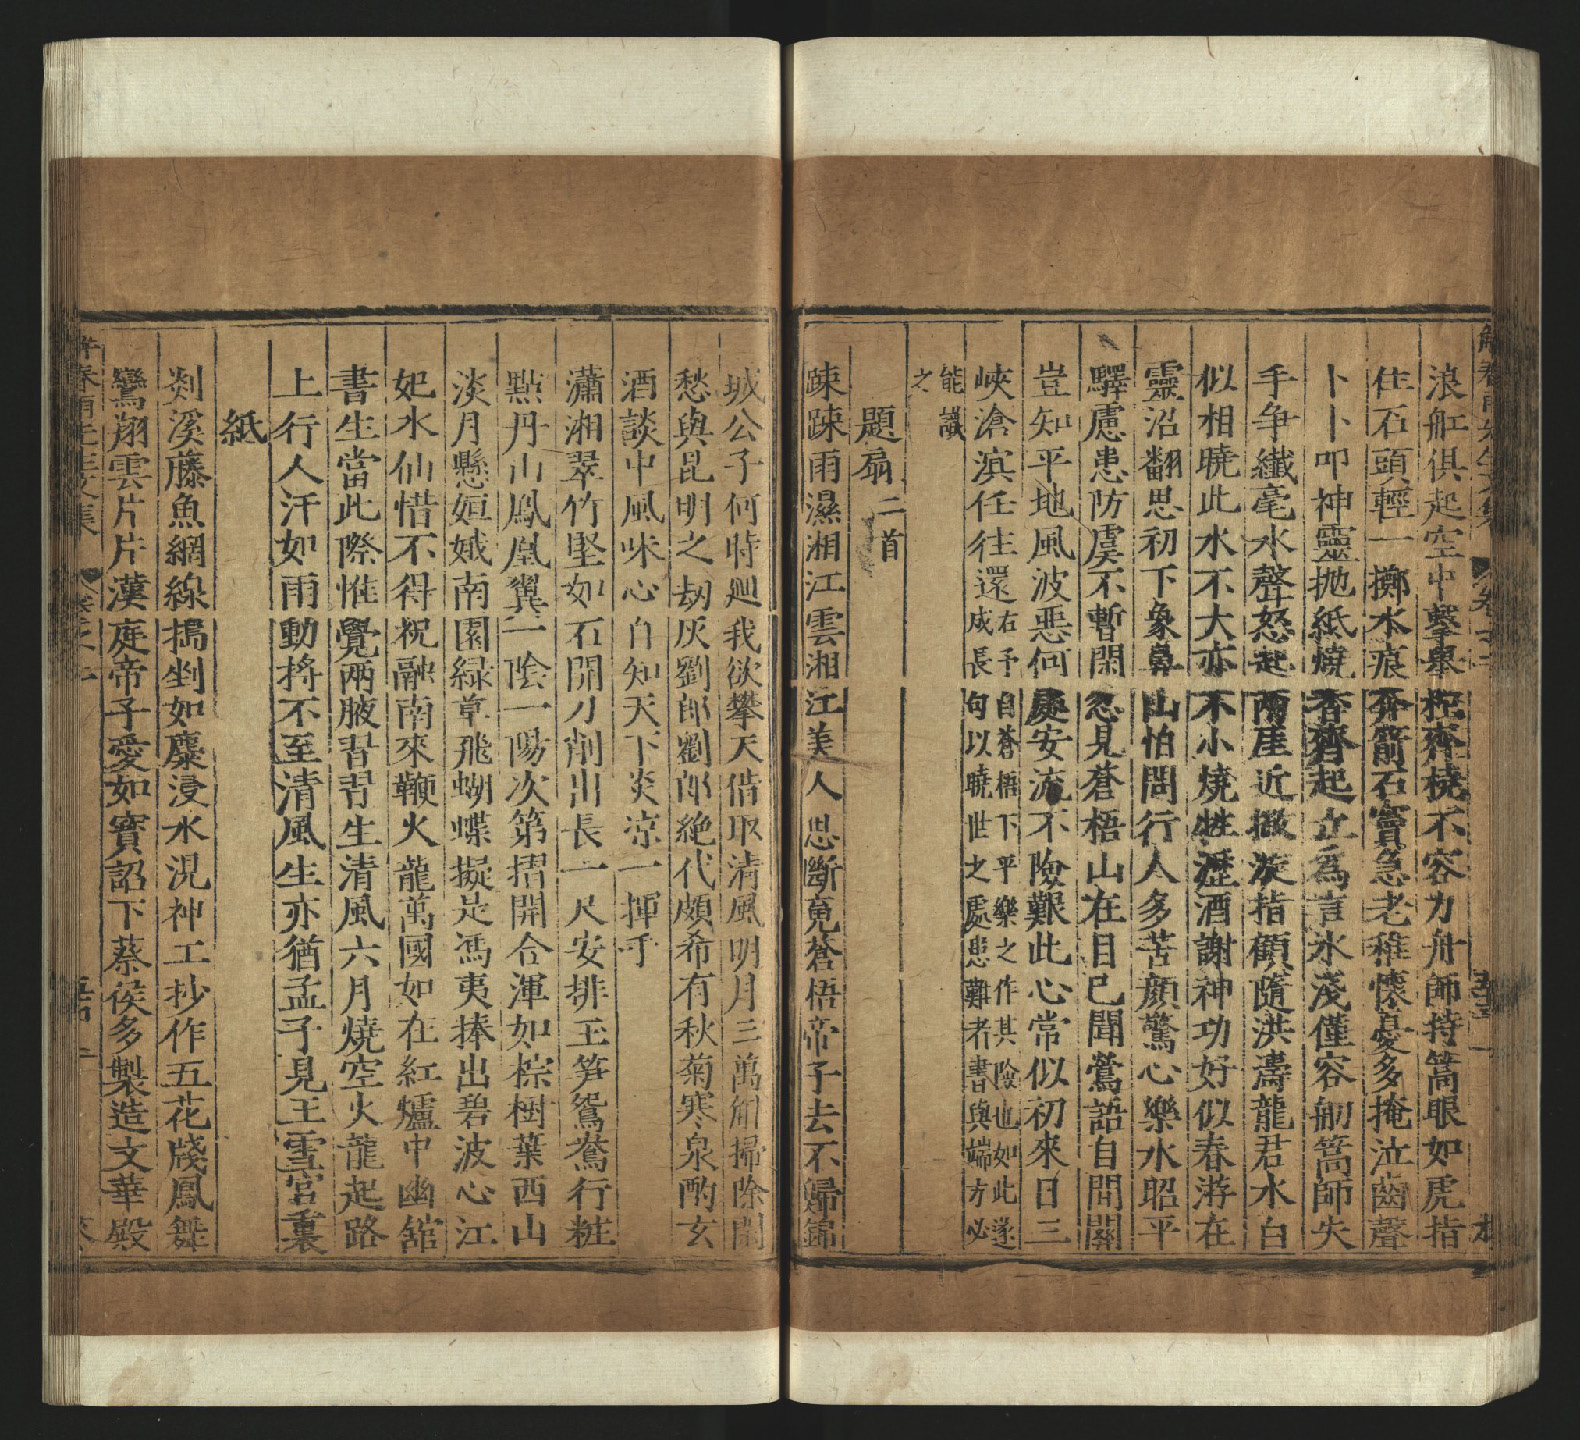 浪舡俱起空中擊舉柁齊橈不容力舟師持篙眼如虎指
住石頭輕一擲水痕奔箭石竇急老稚懷憂多掩泣齒聲
卜卜叩神靈抛紙燒香齊起立爲言水淺僅容舠篙師失
手争纖毫水聲怒起兩厓近撇漩指顧隨洪濤龍君水白
似相曉此水不大亦不小燒牲瀝酒謝神功好似春游在
靈沼翻思初下象鼻山怕問行人多苦顔驚心樂水昭平
驛慮患防虞不暫閑忽見蒼梧山在目已聞鶯語自間關
豈知平地風波惡何處安流不險艱此心常似初來日三
峽滄溟任往還右予自蒼梧下平樂之作其險也如此遂
成長句以曉世之處患難者書與端方必
能識
之
題扇二首
踈踈雨濕湘江雲湘江美人思斷魂蒼梧帝子去不歸錦
城公子何時廻我欲攀天借取清風明月三萬斛掃除閑
愁與昆明之劫灰劉郎劉郎絶代頗希有秋菊寒泉酌玄
酒談中風味心自知天下炎凉一揮手
瀟湘翠竹堅如石開刀削出長一尺安排玉笋鴛鴦行粧
點丹山鳳凰翼一陰一陽次第摺開合渾如棕樹葉西山
淡月懸姮娥南園緑草飛蝴蝶擬是馮夷捧出碧波心江
妃水仙惜不得祝融南來鞭火龍萬國如在紅爐中幽舘
書生當此際惟覺兩腋習習生清風六月燒空火龍起路
上行人汗如雨動将不至清風生亦猶孟子見王雪宮裏
紙
剡溪藤魚網線搗剉如麋浸水洗神工抄作五花牋鳳舞
鸞翔雲片片漢庭帝子愛如寶詔下蔡侯多製造文華殿